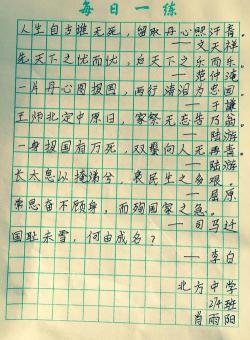 每日一练
人生自古谁无死，留取丹心照汗青。
——文天祥
先天下之忧而忧，后天下之乐而乐。
——范仲淹
一片丹心图报国，两行清泪为思国
——于谦
王师北定中原日，家祭无忘告乃翁。
——陆游
一身报国有万死，双鬓向人无再青。
——陆游
长太息以掩涕兮，哀民生之多艰。
——屈原
常思奋不顾身，而殉国家之急。
——司马迁
国耻未雪，何由成名？
——李白
北方中学
214班
肖雨阳